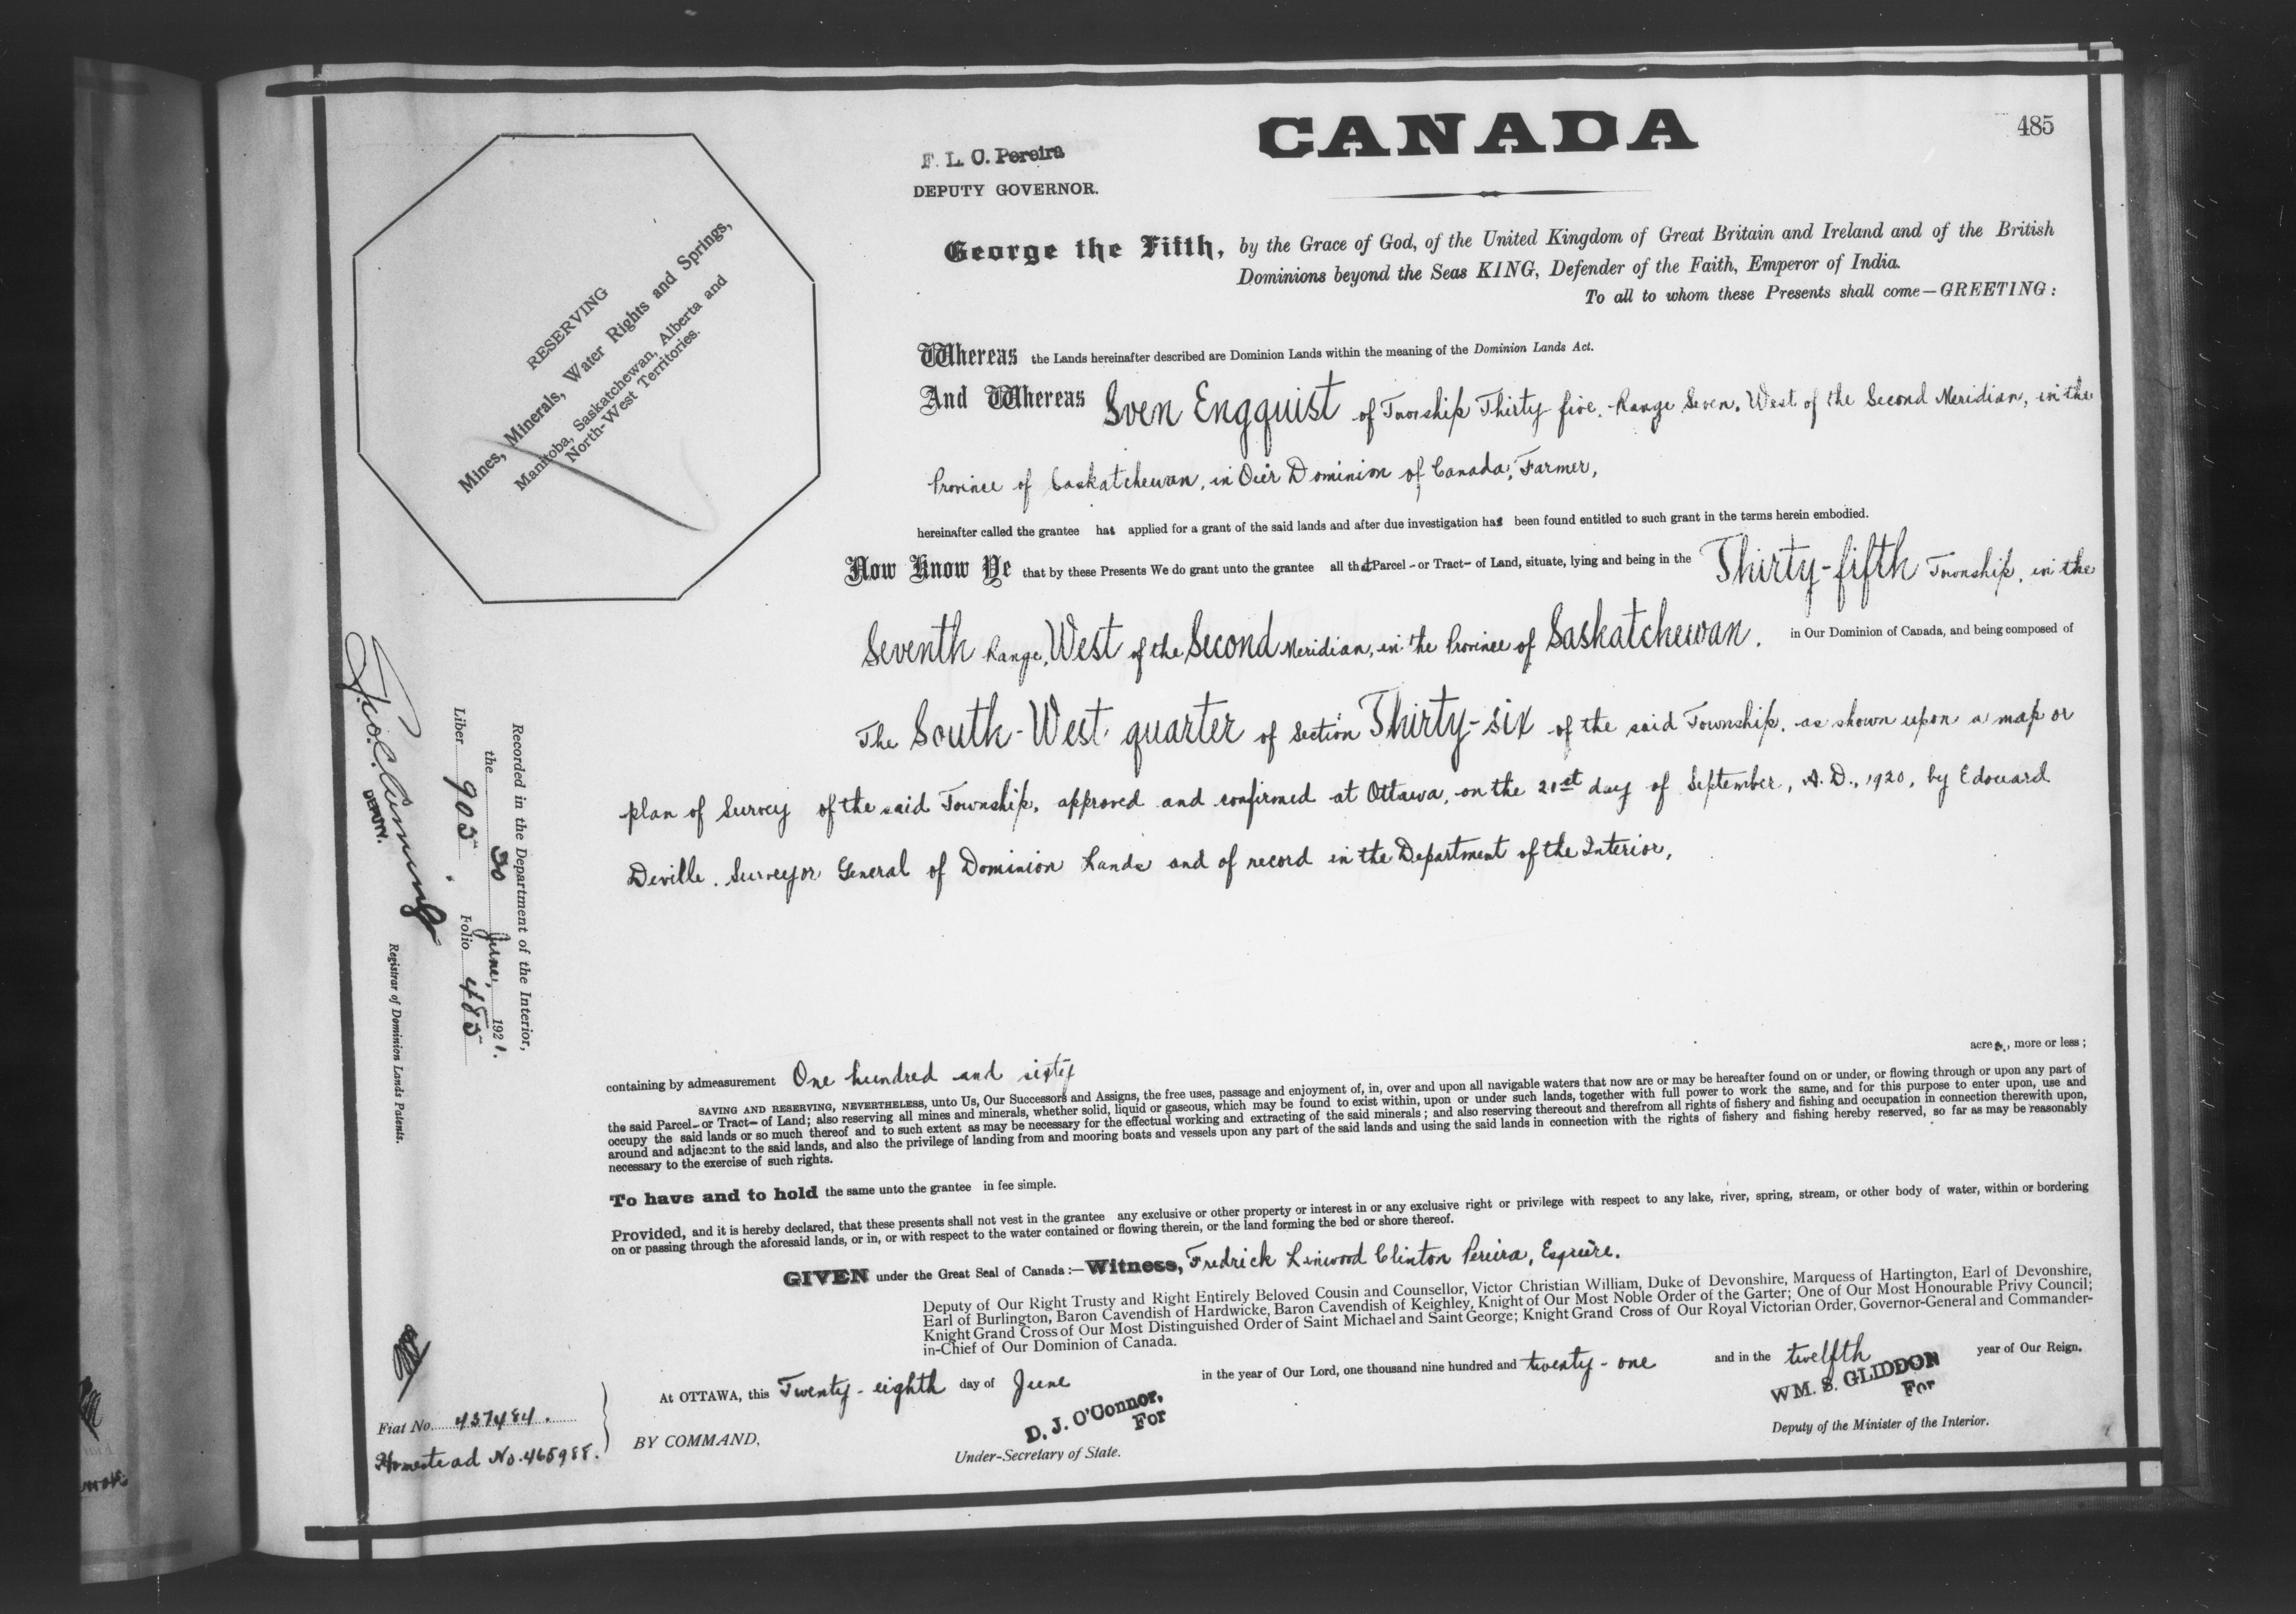 CANADA
485
F. L. C. Pereira
DEPUTY GOVERNOR.
George the Fifth, by the Grace of God, of the United Kingdom of Great Britain and Ireland and of the British
Dominions beyond the Seas KING, Defender of the Faith, Emperor of India.
To all to whom these Presents shall come—GREETING:
RESERVING
Mines, Minerals, Water Rights and Springs,
Manitoba, Saskatchewan, Alberta and
North-West Territories.
Whereas the Lands hereinafter described are Dominion Lands within the meaning of the Dominion Lands Act.
And Whereas Sven Engquist of Township Thirty five, Range Seven, West of the Second Meridian, in the
Province of Saskatchewan, in Our Dominion of Canada, Farmer,
hereinafter called the grantee has applied for a grant of the said lands and after due investigation has been found entitled to such grant in the terms herein embodied.
Now Know Ye that by these Presents We do grant unto the grantee all that Parcel - or Tract - of Land, situate, lying and being in the Thirty-fifth Township, in the
Seventh Range, West of the Second Meridian, in the Province of Saskatchewan. in Our Dominion of Canada, and being composed of
The South-West quarter of Section Thirty-six of the said Township, as shown upon a map or
plan of Survey of the said Township, approved and confirmed at Ottawa, on the 21st day of September, A.D., 1920, by Edouard
Deville, Surveyor General of Dominion Lands and of record in the Department of the Interior,
Recorded in the Department of the Interior,
the 30 June, 1921.
Liber 905 Folio 485
DEPUTY.
Registrar of Dominion Lands Patents.
containing by admeasurement One hundred and sixty acres, more or less;
SAVING AND RESERVING, NEVERTHELESS, unto Us, Our Successors and Assigns, the free uses, passage and enjoyment of, in, over and upon all navigable waters that now are or may be hereafter found on or under, or flowing through or upon any part of
the said Parcel - or Tract - of Land; also reserving all mines and minerals, whether solid, liquid or gaseous, which may be found to exist within, upon or under such lands, together with full power to work the same, and for this purpose to enter upon, use and
occupy the said lands or so much thereof and to such extent as may be necessary for the effectual working and extracting of the said minerals; and also reserving thereout and therefrom all rights of fishery and fishing and occupation in connection therewith upon,
around and adjacent to the said lands, and also the privilege of landing from and mooring boats and vessels upon any part of the said lands and using the said lands in connection with the rights of fishery and fishing hereby reserved, so far as may be reasonably
necessary to the exercise of such rights.
To have and to hold the same unto the grantee in fee simple.
Provided, and it is hereby declared, that these presents shall not vest in the grantee any exclusive or other property or interest in or any exclusive right or privilege with respect to any lake, river, spring, stream, or other body of water, within or bordering
on or passing through the aforesaid lands, or in, or with respect to the water contained or flowing therein, or the land forming the bed or shore thereof.
GIVEN under the Great Seal of Canada:—Witness, Fredrick Linwood Clinton Pereira, Esquire.
Deputy of Our Right Trusty and Right Entirely Beloved Cousin and Counsellor, Victor Christian William, Duke of Devonshire, Marquess of Hartington, Earl of Devonshire,
Earl of Burlington, Baron Cavendish of Hardwicke, Baron Cavendish of Keighley, Knight of Our Most Noble Order of the Garter; One of Our Most Honourable Privy Council;
Knight Grand Cross of Our Most Distinguished Order of Saint Michael and Saint George; Knight Grand Cross of Our Royal Victorian Order, Governor-General and Commander-
in-Chief of Our Dominion of Canada.
At OTTAWA, this Twenty-eighth day of June in the year of Our Lord, one thousand nine hundred and twenty-one and in the twelfth year of Our Reign.
BY COMMAND,
D. J. O'Connor,
For
Under-Secretary of State.
WM. S. GLIDDON
For
Deputy of the Minister of the Interior.
Fiat No. 437484.
Homestead No. 465988.